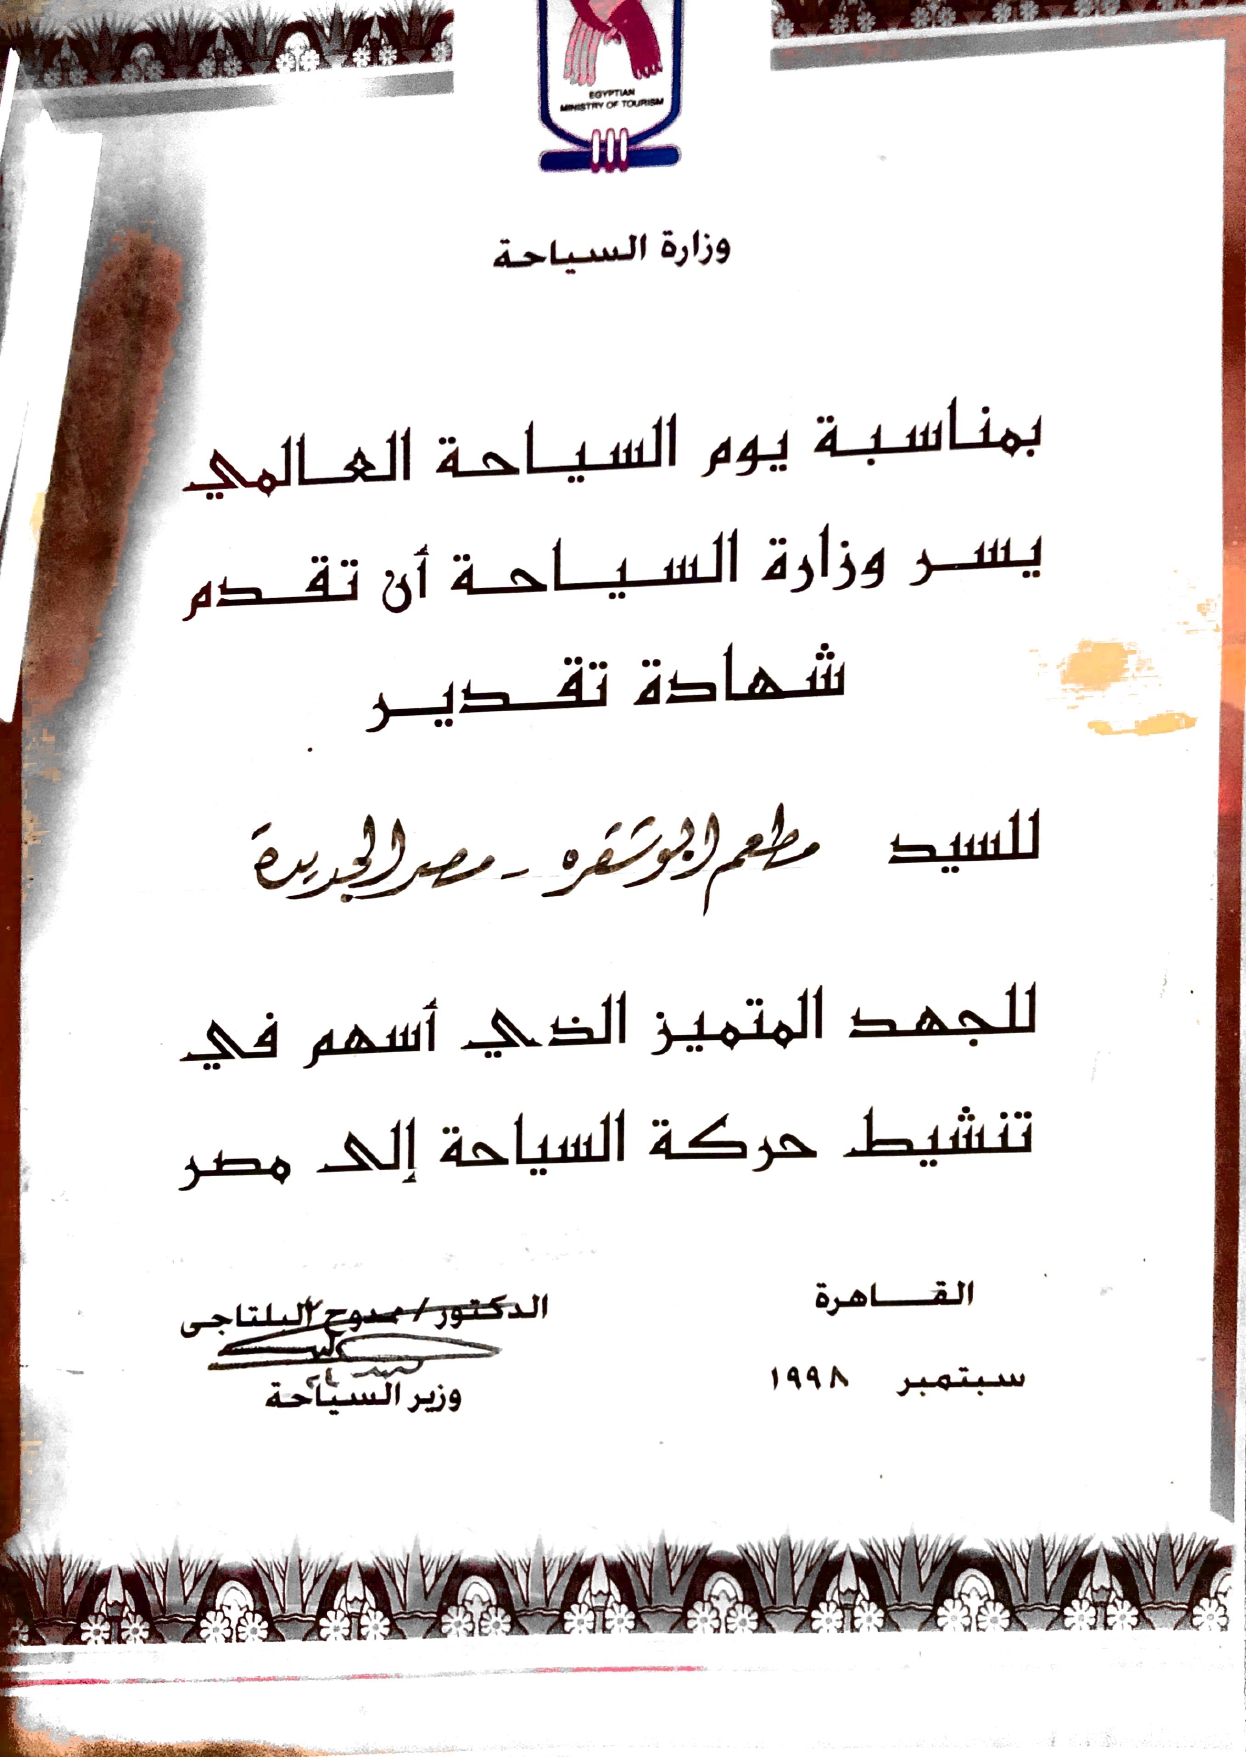 EGYPTIAN
MINISTRY OF TOURISM
وزارة السياحة
بمناسبة يوم السياحة العالمي
يسر وزارة السياحة أن تقدم
شهادة تقدير
للسيد مطعم ابوشقره - مصر الجديدة
للجهد المتميز الذي أسهم في
تنشيط حركة السياحة إلى مصر
القاهرة
سبتمبر ١٩٩٨
الدكتور/ممدوح البلتاجى
وزير السياحة